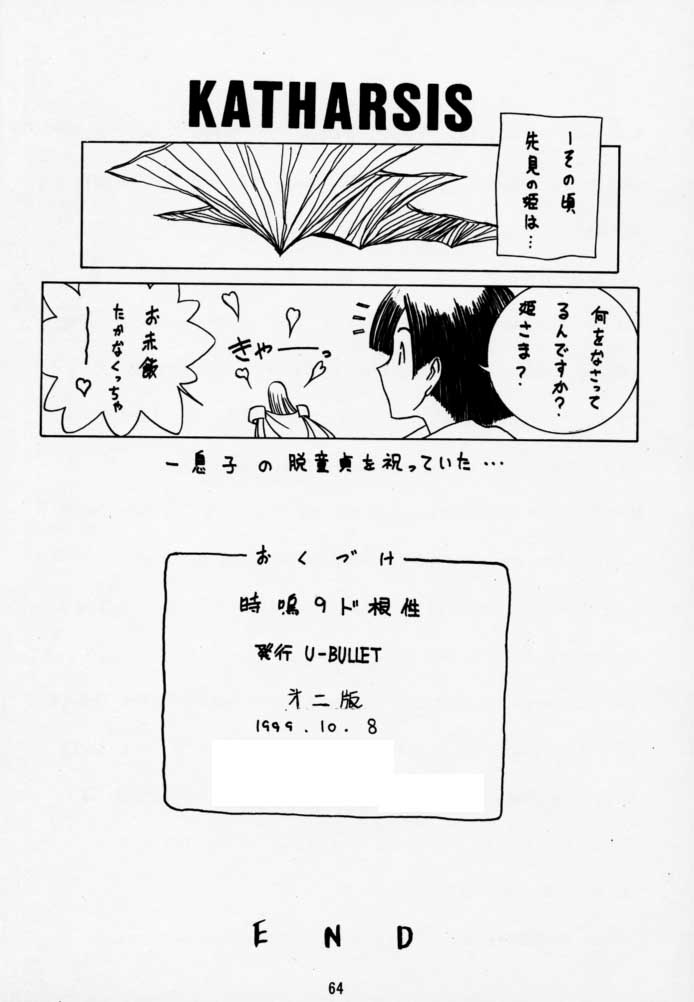 KATHARSIS
ーその頃
先見の姫は…
何をなさって
るんですか?
姫さま?
きゃーーっ
お赤飯
たかなくっちゃ
ーー♡
ー息子の脱童貞を祝っていた…
おくづけ
時鳴9ド根性
発行 U-BULLET
才二版
1999.10.8
END
64